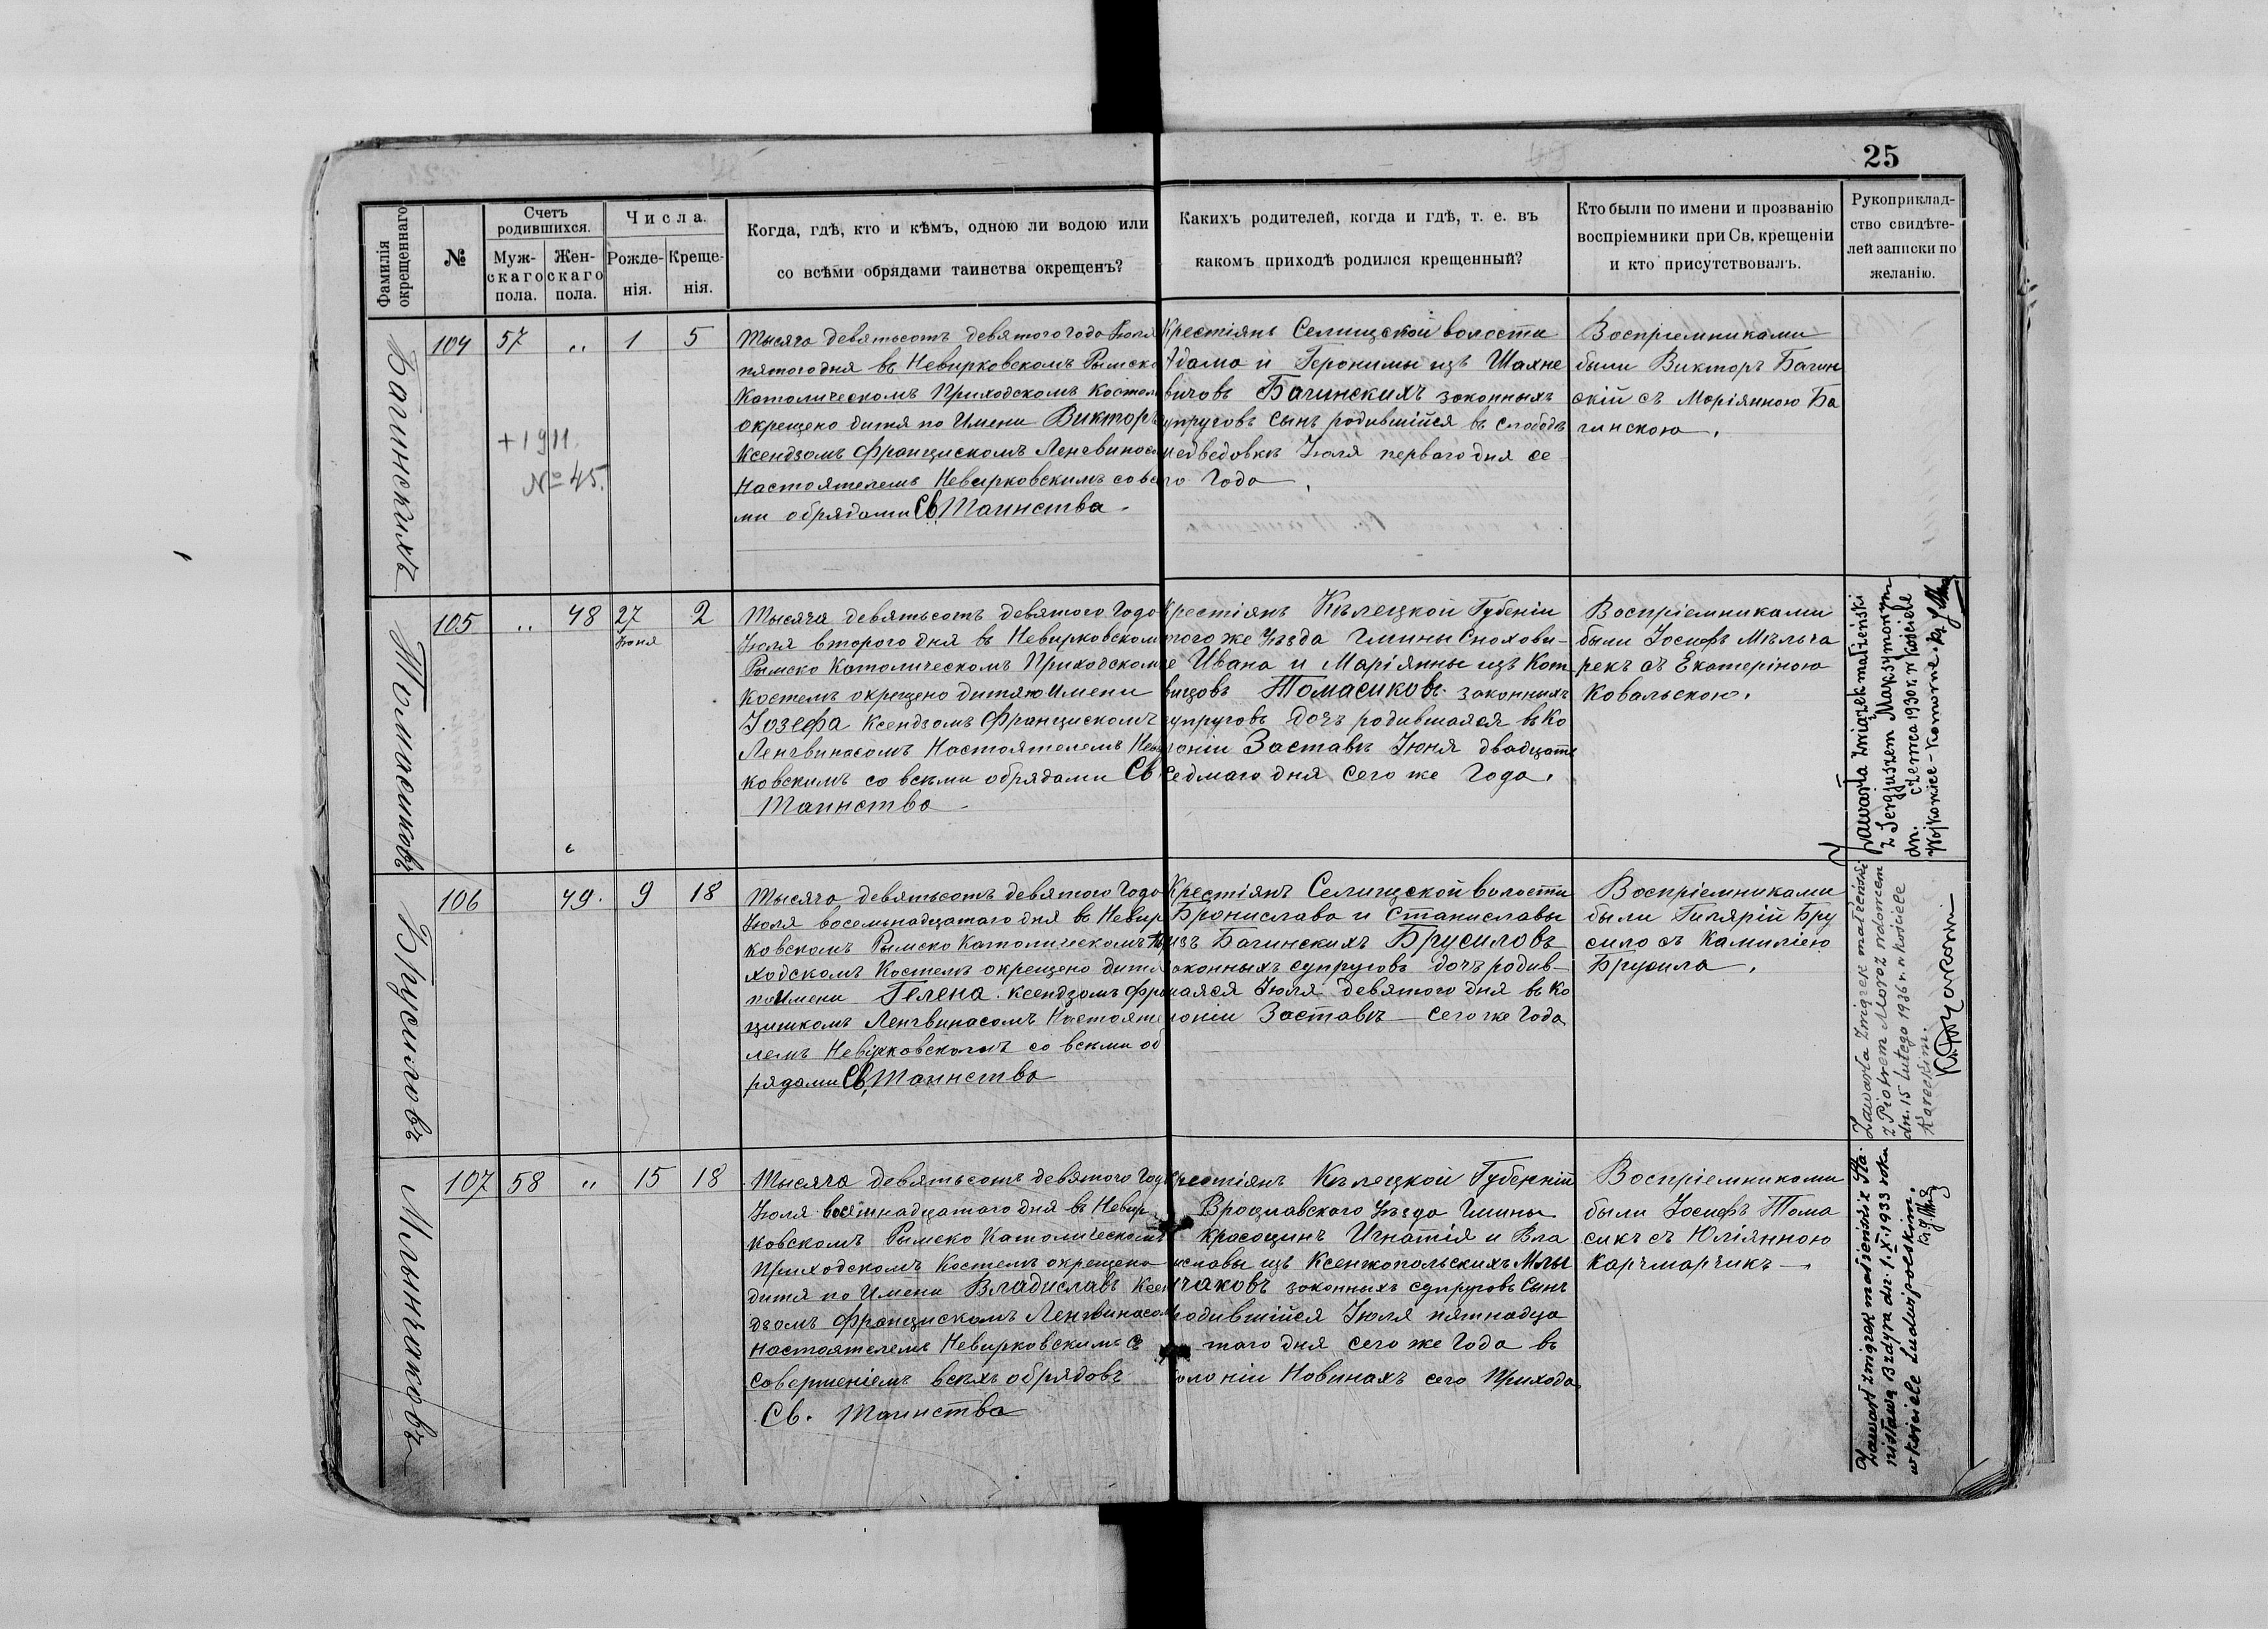 25
Фамилія окрещеннаго
№
Счетъ родившихся.
Муж-скаго пола.
Жен-скаго пола.
Числа.
Рожде-нія.
Креще-нія.
Когда, гдѣ, кто и кѣмъ, одною ли водою или
со всѣми обрядами таинства окрещенъ?
Какихъ родителей, когда и гдѣ, т. е. въ
какомъ приходѣ родился крещенный?
Кто были по имени и прозванію
воспріемники при Св. крещеніи
и кто присутствовалъ.
Рукоприклад-
ство свидѣте-
лей записки по
желанію.
Багинскихъ
104 57 „ 1 5
+ 1911
№ 45.
Тысяча девятьсотъ девятого Года Іюля
пятого дня въ Невирковскомъ Рымско
Католическомъ Приходскомъ Костел
окрещено дитя по Имени Викторъ
Ксендзомъ Францискомъ Ленгвинасом
Настоятелемъ Невирковскимъ со вс
ми обрядами Св. Таинства.
Крестіянъ Селищской волости
Адама и Геронимы изъ Шахне
вичовъ Багинскихъ законныхъ
супруговъ сынъ родившійся въ слободѣ
Медведовкѣ Іюля первого дня се
го Года.
Воспріемниками
были Викторъ Багин
скій съ Маріянною Ба
гинскою.
Томасиковъ
105 „ 48 27 Іюня 2
Тысяча девятьсотъ девятого Года
Іюля второго дня въ Невирковском
Рымско Католическомъ Приходском
Костелѣ окрещено дитя по Имени
Іозефа Ксендзомъ Францискомъ
Ленгвинасомъ Настоятелемъ Нев
ковскимъ со всѣми обрядами Св
Таинства.
Крестіянъ Кѣлецкой Губеніи
того же Уѣзда Гмины Снохови-
це Ивана и Маріянны изъ Кот
вицовъ Томасиковъ законныхъ
супруговъ дочъ родившаяся въ Ко
лоніи Заставѣ Іюня двадцать
седмаго дня сего же Года.
Воспріемниками
были Іосифъ Мѣльча
рекъ съ Екатериною
Ковальскою.
zawarła związek małżeński
z Sergjuszem Maksymonym
dn. czerwca 1930 r. w kościele
Wojkowice-Komorne.
Брусиловъ
106 49. 9 18
Тысяча девятьсотъ девятого Года
Іюля восемьнадцатаго дня въ Невир
ковскомъ Рымско Католическомъ При
ходскомъ Костелѣ окрещено дитя
по Имени Гелена Ксендзомъ Фран
цишкомъ Ленгвинасомъ Настояте
лемъ Невірковскомъ со всѣми об
рядами Св. Таинства
Крестіянъ Селищской волости
Бронислава и Станиславы
изъ Багинскихъ Брусиловъ
законныхъ супруговъ дочъ родив-
шаяся Іюля девятого дня въ Ко
лоніи Заставѣ сего же Года
Воспріемниками
были Гилярій Бру
сило съ Камиліею
Брусила.
Zawarła związek małżeński
z Piotrem Moroz wdowcem
dn. 15 lutego 1936 r. w kościele
Koreckim.
Млынчаковъ
107 58 „ 15 18
Тысяча девятьсотъ девятого Год
Іюля восемнадцатаго дня въ Невир
ковскомъ Рымско Католическомъ
Приходскомъ Костелѣ окрещено
дитя по Имени Владиславъ Ксен
дзомъ Францискомъ Ленгвинасом
Настоятелемъ Невирковскимъ съ
совершеніемъ всѣхъ обрядовъ
Св. Таинства
Крестіянъ Кѣлецкой Губенніи
Врощлавского Уѣзда Гмины
Красоцинъ Игнатія и Вла
иславы изъ Ксенжопольскихъ Млы
нчаковъ законныхъ супруговъ сынъ
родившійся Іюля пятнадца
таго дня сего же Года въ
Колоніи Новинахъ сего Прихода
Воспріемниками
были Іосифъ Тома
сикъ съ Юліянною
Карчмарчикъ.
Zawarł związek małżeński z Sta-
nisławą Bzdyra dn. 1.X.1933 roku
w kościele Ludwipolskim.